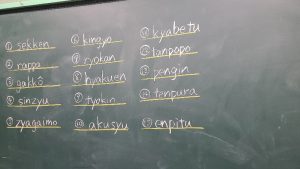 ① sekken
② rappa
③ gakkô
④ sinzyu
⑤ zyagaimo
⑥ kingyo
⑦ ryokan
⑧ hyakuen
⑨ tyokin
⑩ akusyu
⑪ kyabetu
⑫ tanpopo
⑬ pengin
⑭ tenpura
⑮ enpitu